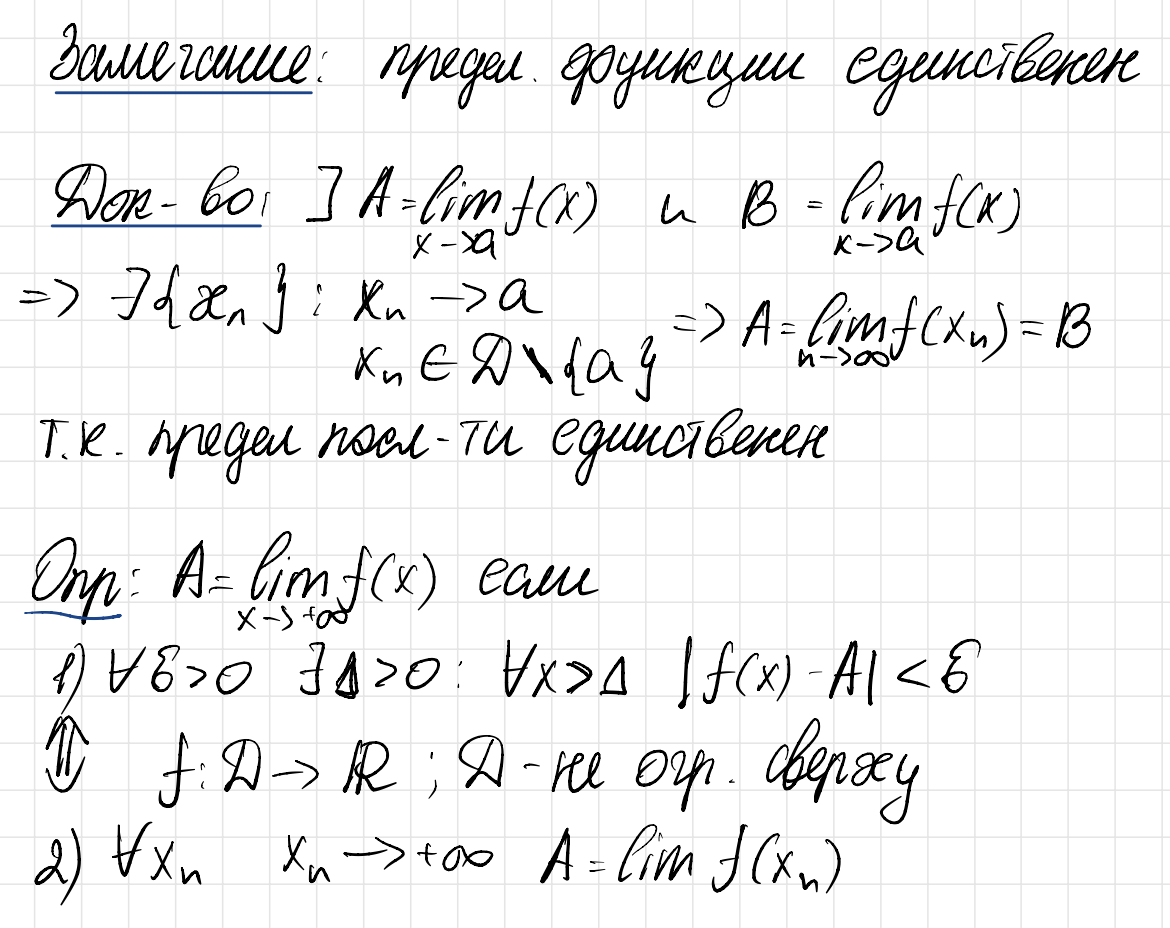 Замечание: предел. функции единственен
Док-во: ] A = lim f(x) и B = lim f(x)
x->a x->a
=> ∃{xₙ} : xₙ -> a
xₙ ∈ D \ {a} => A = lim f(xₙ) = B
n->∞
т.к. предел посл-ти единственен
Опр: A = lim f(x) если
x->+∞
1) ∀ε>0 ∃Δ>0: ∀x>Δ |f(x) - A| < ε
⇕ f: D -> ℝ ; D - не огр. сверху
2) ∀xₙ xₙ -> +∞ A = lim f(xₙ)